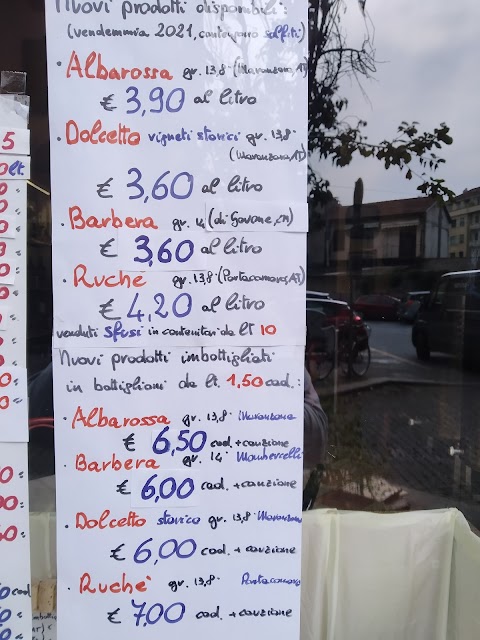 Nuovi prodotti disponibili:
(vendemmia 2021, contengono solfiti)
· Albarossa gr. 13,8 · (Maranzana, AT)
€ 3,90 al litro
· Dolcetto vigneti storici gr. 13,8 ·
(Maranzana, AT)
€ 3,60 al litro
· Barbera gr. 14 (di Govone, CN)
€ 3,60 al litro
· Ruchè gr. 13,8 · (Portacomaro, AT)
€ 4,20 al litro
venduti sfusi in contenitori da lt 10
Nuovi prodotti imbottigliati
in bottiglioni da lt. 1,50 cad.:
· Albarossa gr. 13,8 · Maranzana
€ 6,50 cad. + cauzione
· Barbera gr. 14 · Mombercelli
€ 6,00 cad. + cauzione
· Dolcetto storico gr. 13,8 · Maranzana
€ 6,00 cad. + cauzione
· Ruche' gr. 13,8 · Portacomaro
€ 7,00 cad. + cauzione